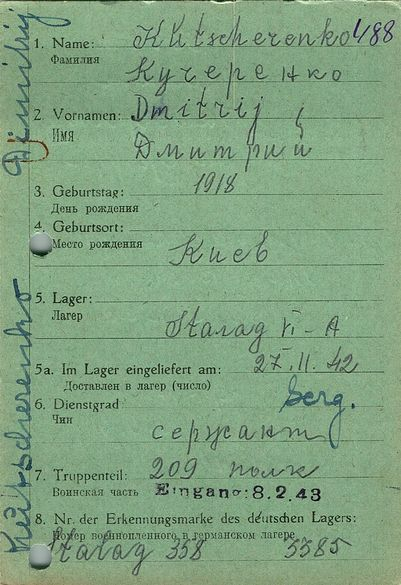 1. Name: Kutscherenko 488
Фамилия Кучеренко
2. Vornamen: Dmitrij
Имя Дмитрий
3. Geburtstag: 1918
День рождения
4. Geburtsort:
Место рождения Киев
5. Lager:
Лагер Stalag VI-A
5a. Im Lager eingeliefert am: 27.11.42
Доставлен в лагер (число)
6. Dienstgrad serg.
Чин сержант
7. Truppenteil: 209 полк
Воинская часть Eingang: 8.2.43
8. Nr. der Erkennungsmarke des deutschen Lagers:
Номер военнопленного в германском лагере
Stalag 358 5585
Kutscherenko Dimitrij